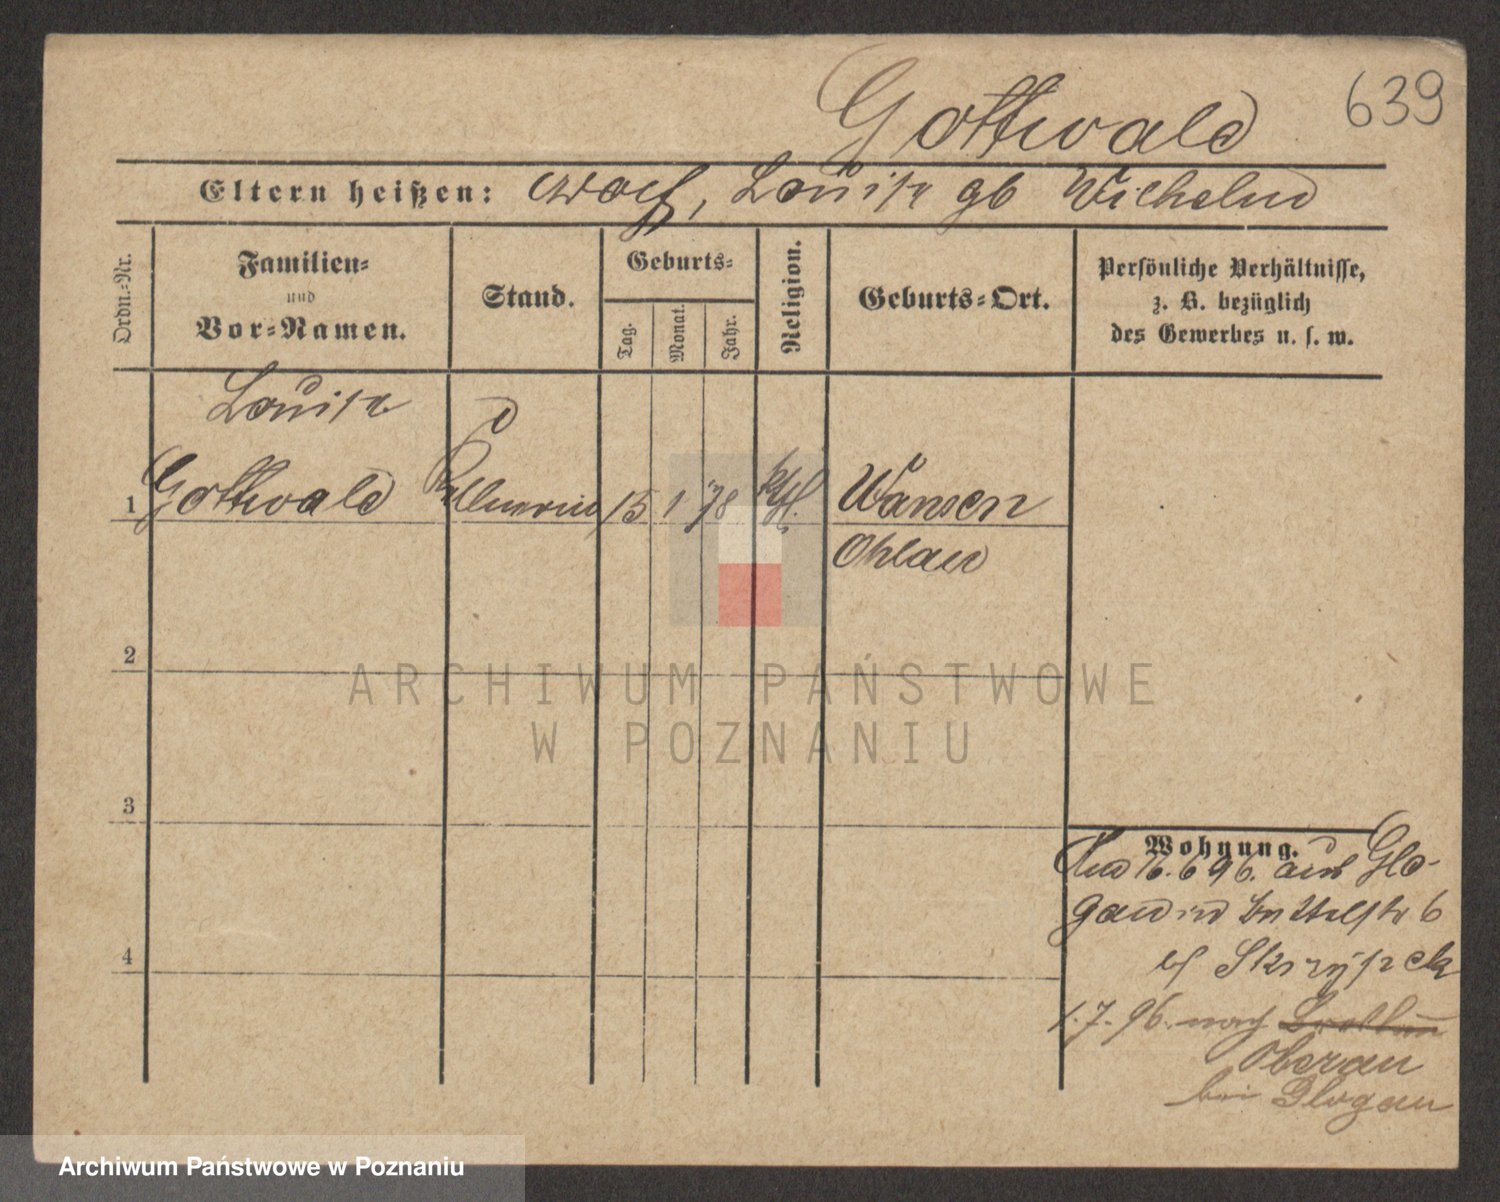 639
Gottwald
Eltern heißen: Louise gb Wilhelm
Ordn.-Nr.
Familien-
und
Vor-Namen.
Stand.
Geburts-
Tag.
Monat.
Jahr.
Religion.
Geburts-Ort.
Persönliche Verhältnisse,
z. B. bezüglich
des Gewerbes u. s. w.
Louise
1 Gottwald 15 1 78 kth. Wansen
Ohlau
2
ARCHIWUM PAŃSTWOWE
W POZNANIU
3
Wohnung.
16.6 96. aus Glo-
gau 6
Skrzypek
1.7.96. nach
Oberau
bei Glogau
4
Archiwum Państwowe w Poznaniu